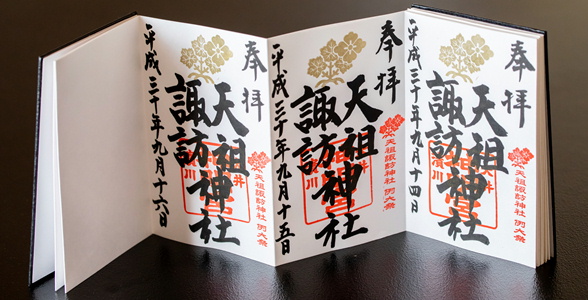 奉拝
天祖諏訪神社 例大祭
天祖
諏訪
神社
平成三十年九月十四日
奉拝
天祖諏訪神社 例大祭
天祖
諏訪
神社
平成三十年九月十五日
奉拝
天祖諏訪神社 例大祭
天祖
諏訪
神社
平成三十年九月十六日